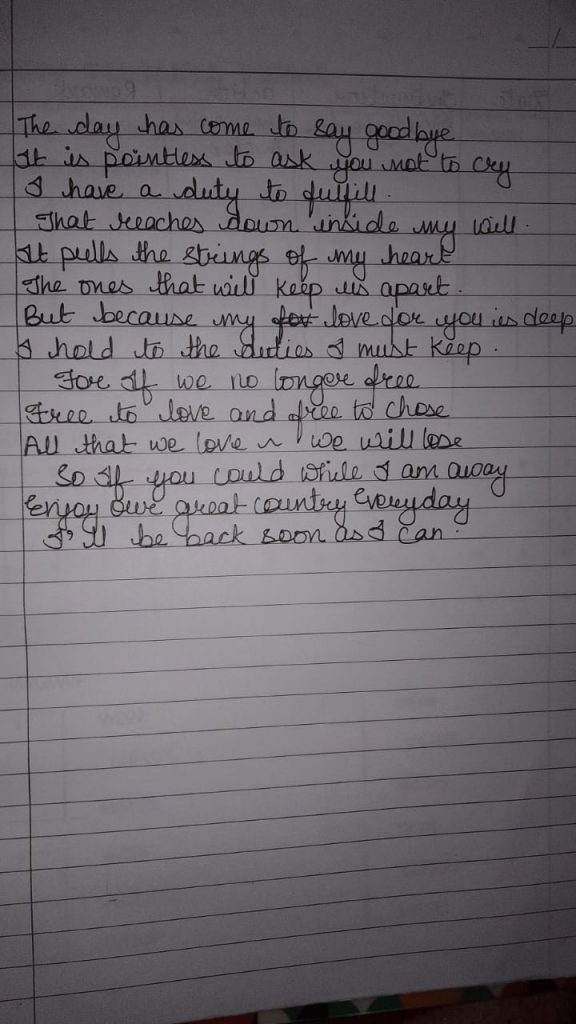 The day has come to say goodbye
It is pointless to ask you not to cry
I have a duty to fulfill.
That reaches down inside my will.
It pulls the strings of my heart
The ones that will keep us apart.
But because my for love for you is deep
I hold to the duties I must keep.
For If we no longer free
Free to love and free to chose
All that we love we will lose
So If you could while I am away
Enjoy our great country Everyday
I'll be back soon as I can.